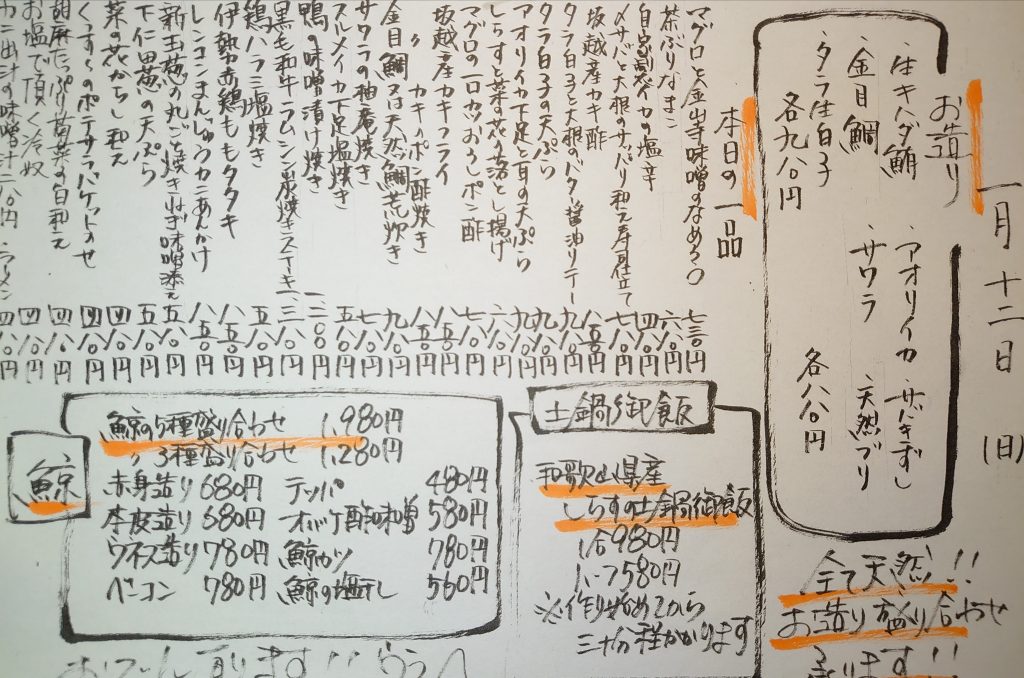 一月十二日(日)
お造り
・生キハダ鮪
・金目鯛
・タラ生白子
各九八〇円
・アオリイカ
・サワラ
・サバきずし
・天然ブリ
各八八〇円
全て天然!!
お造り盛り合わせ
承ります!!
本日の一品
・マグロと金山寺味噌のなめろう 七三〇円
・茶ぶりなまこ 六八〇円
・自家製イカの塩辛 四八〇円
・〆サバと大根のサッパリ和え寿司仕立て 七八〇円
・坂越産カキ酢 八五〇円
・タラ白子と大根のバター醤油ソテー 九八〇円
・タラ白子の天ぷら 九八〇円
・アオリイカ下足と耳の天ぷら 九八〇円
・しらすと菜の花の落とし揚げ 六八〇円
・マグロの一口カツおろしポン酢 七八〇円
・坂越産カキフライ 八八〇円
・〃カキのポン酢焼き 八五〇円
・金目鯛又は天然鯛荒炊き 九八〇円
・サワラの柚庵焼き 七八〇円
・スルメイカ下足塩焼き 五八〇円
・鴨の味噌漬け焼き
・黒毛和牛ラムシン炭焼きステーキ
・鶏ハラミ塩焼き 五八〇円
・伊勢赤鶏ももタタキ 八五〇円
・レンコンまんじゅうカニあんかけ 八五〇円
・新玉葱の丸ごと焼きねぎ味噌添え 五八〇円
・下仁田葱の天ぷら 五八〇円
・菜の花からし和え 四八〇円
くんすもののポテサラバゲットのせ 四八〇円
胡麻たっぷり菊菜の白和え 四八〇円
お塩で頂く冷奴 四八〇円
カニ出汁の味噌汁六八〇円 ラーメン 四八〇円
土鍋御飯
和歌山県産
しらすの土鍋御飯
1合980円
ハーフ580円
※作り始めてから
三十分程かかります
鯨
鯨の5種盛り合わせ 1,980円
〃3種盛り合わせ 1,280円
赤身造り 680円 テッパ 480円
本皮造り 680円 オバケ酢味噌 580円
ウネス造り 780円 鯨カツ 780円
ベーコン 780円 鯨の塩干し 560円
おでん有ります!!